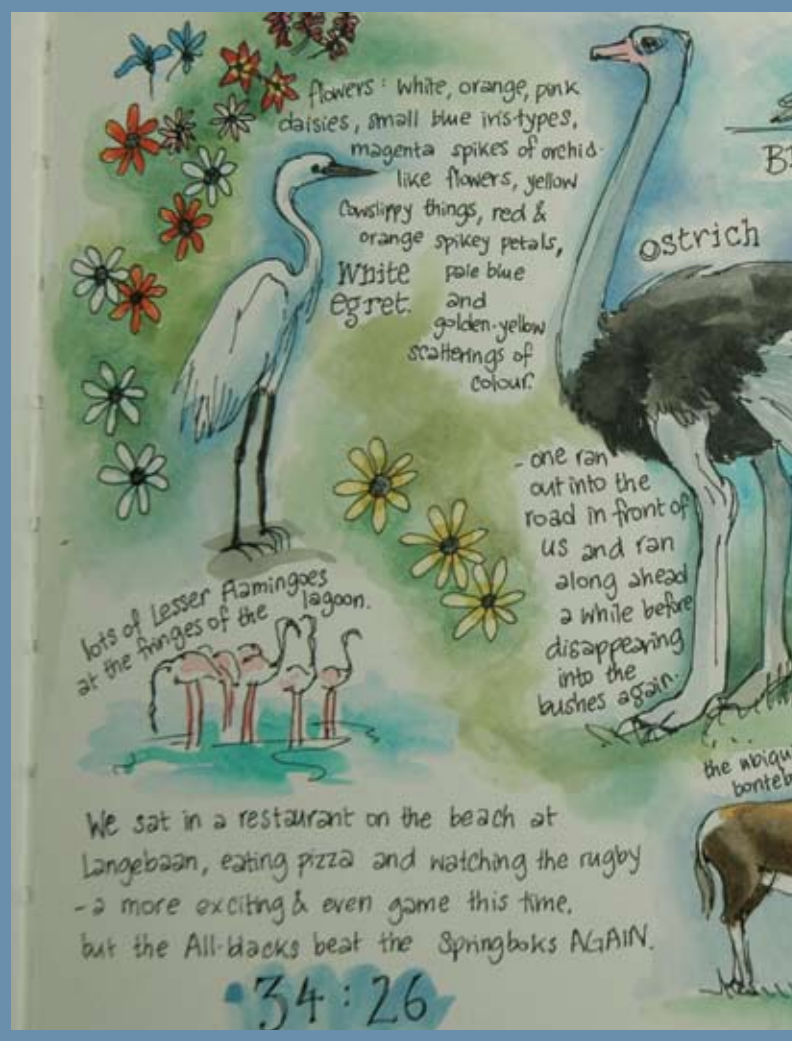 flowers: white, orange, pink
daisies, small blue iris-types,
magenta spikes of orchid-
like flowers, yellow
Cowslippy things, red &
orange spikey petals,
pale blue
and
golden-yellow
scatterings of
colour.
White
egret.
Ostrich
- one ran
out into the
road in front of
us and ran
along ahead
a while before
disappearing
into the
bushes again.
lots of Lesser Flamingoes
at the fringes of the lagoon.
the
We sat in a restaurant on the beach at
Langebaan, eating pizza and watching the rugby
- a more exciting & even game this time,
but the All-blacks beat the Springboks AGAIN.
34:26